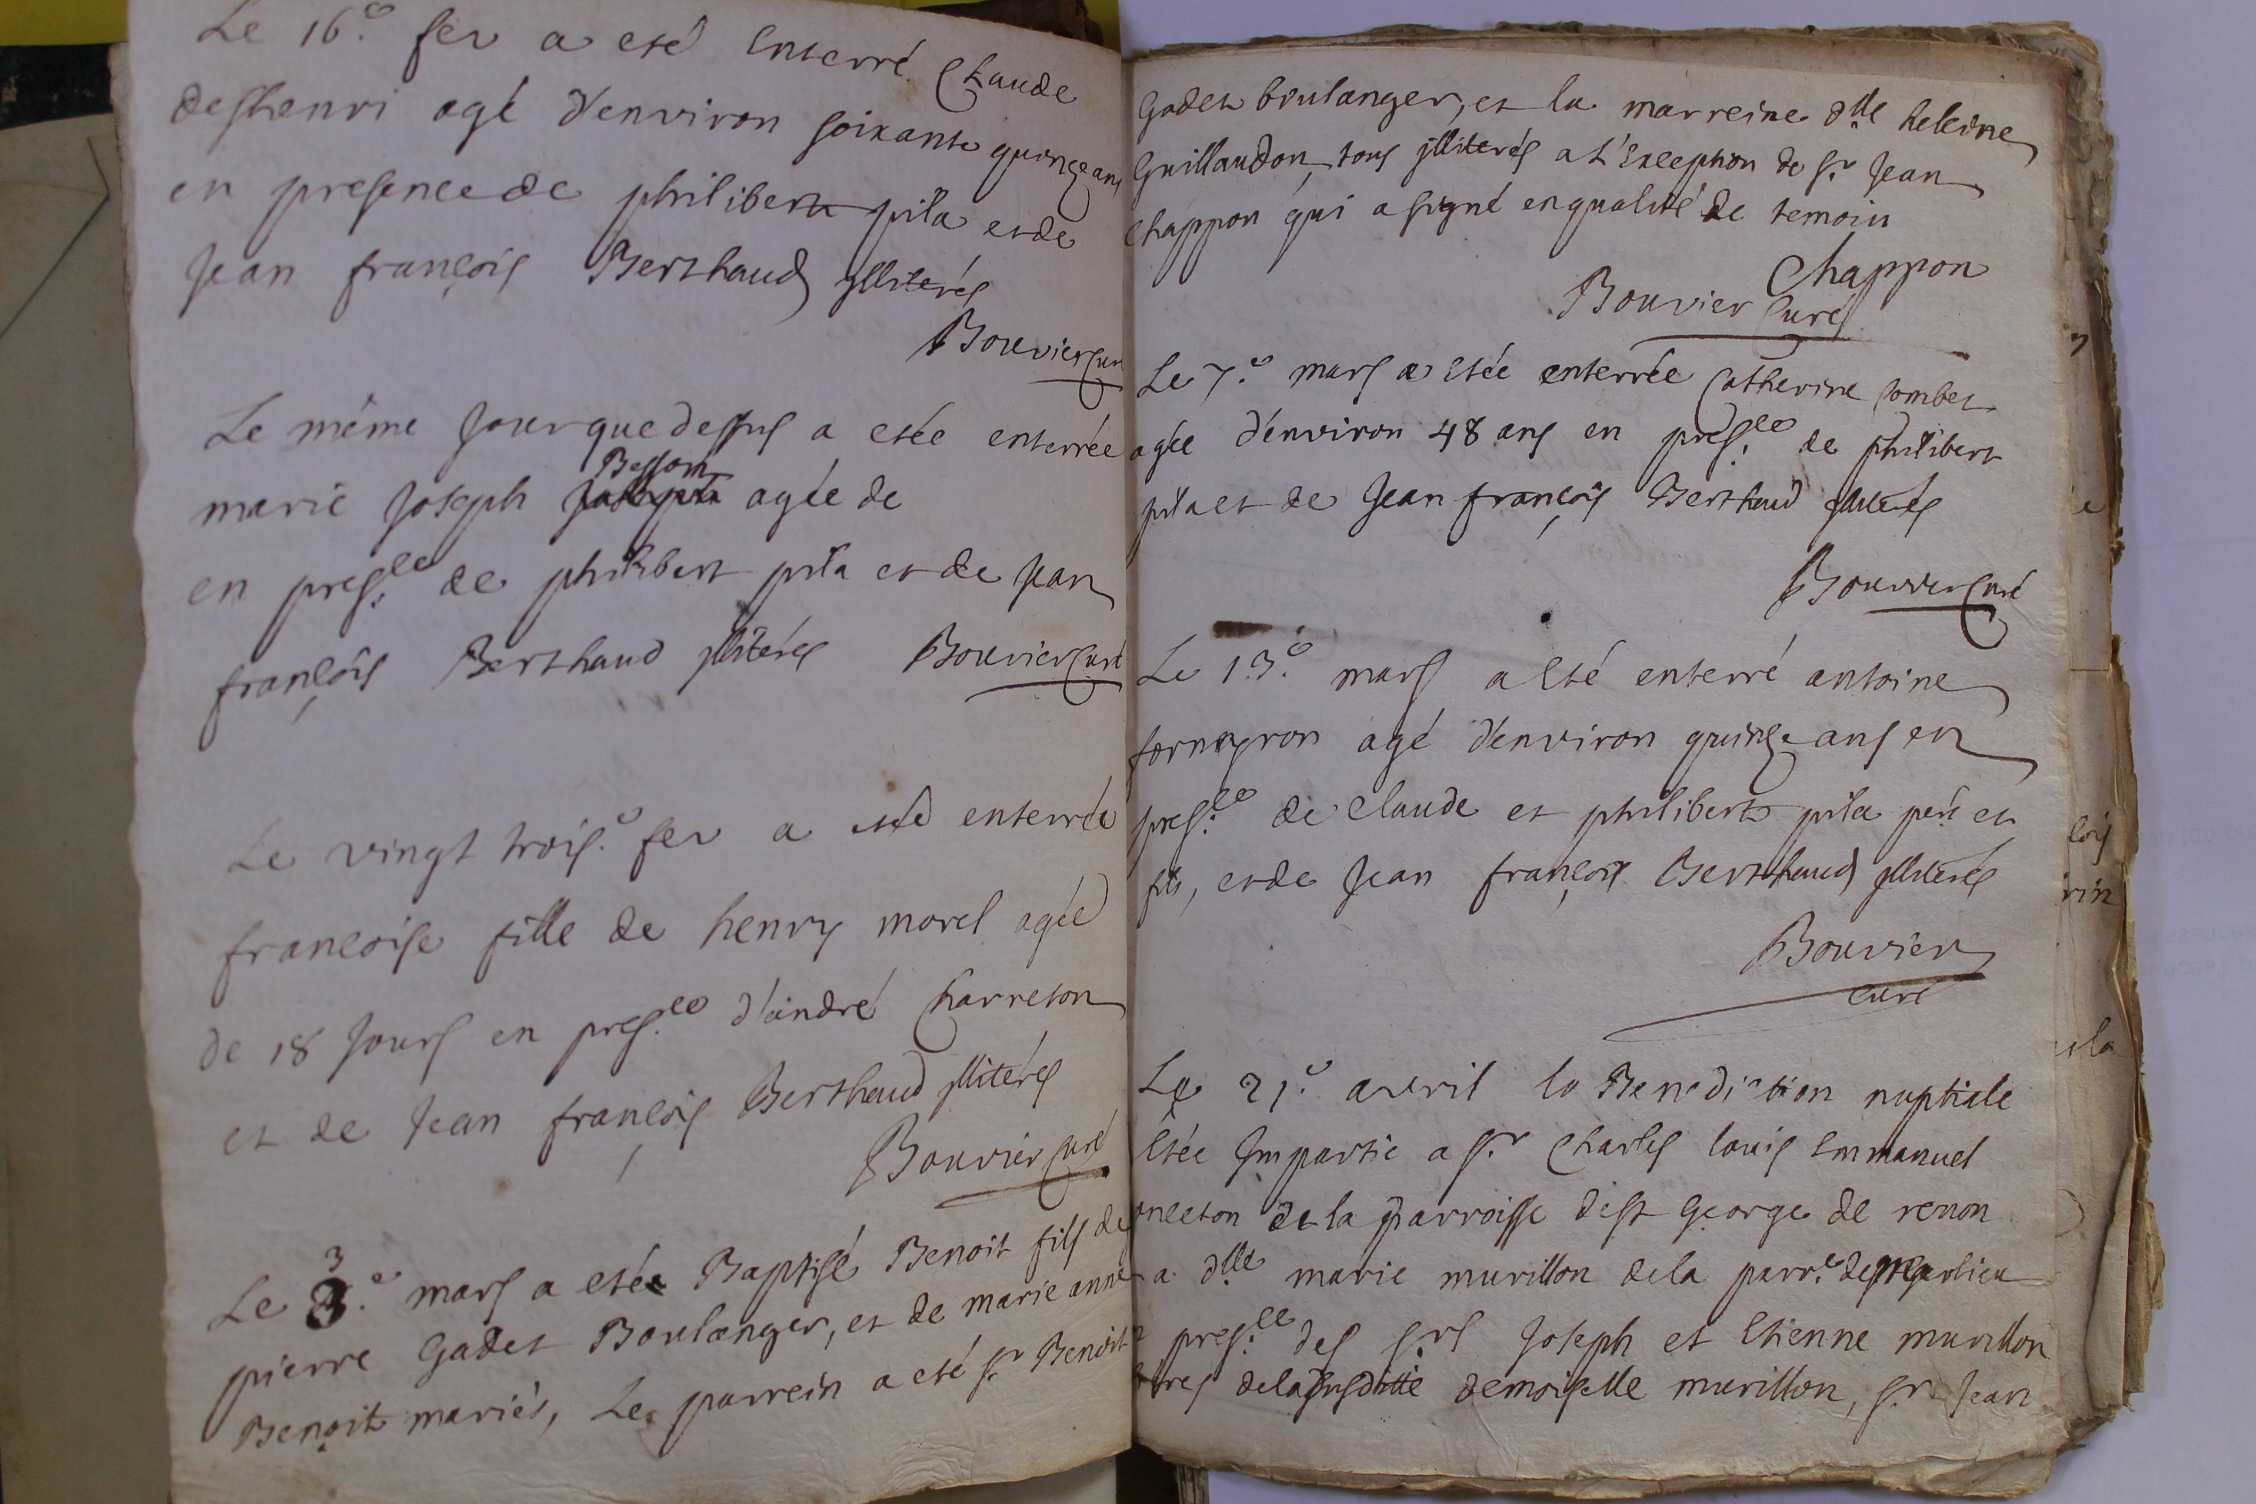 Le 16.e fev a eté enterré Claude
deschenri agé d'environ soixante quinze ans
en presence de philibert pila et de
Jean françois Berthaud jlliterés
Bouvier Curé
Le même jour que dessus a etée enterrée
Besson
marie Joseph agée de
en pres.ce de philibert pila et de Jean
françois Berthaud jlliterés Bouvier Curé
Le vingt trois.e fev a eté enterrée
francoise fille de henry morel agée
de 18 jours en pres.ce d'andré Charreton
et de Jean françois Berthaud jlliterés
Bouvier Curé
3
Le 3.e mars a etée Baptisé Benoit fils de
pierre Gadet Boulanger, et de marie anne
Benoit mariés, Le parrein a eté s.r Benoit
Gadet boulanger, et la marreine d.lle heleine
Guillaudon, tous jlliterés a l'exception de s.r Jean
Chappon qui a signé en qualité de temoin
Chappon
Bouvier Curé
Le 7.e mars a etée enterrée Catherine Combet
agée d'environ 48 ans en pres.ce de philibert
pila et de Jean françois Berthaud jlliterés
Bouvier Curé
Le 13.e mars a eté enterré antoine
forneyron agé d'environ quinze ans en
pres.ce de Claude et philibert pila peré et
fils, et de Jean françois Berthaud jlliterés
Bouvier
curé
Le 21.e avril la Benediction nuptiale
etée jmpartie a s.r Charles louis Emmanuel
de la parroisse de st George de renon
a d.lle marie murillon de la parr.e de marlieu
pres.ce des s.rs Joseph et Etienne murillon
de la susditte demoiselle murillon, s.r Jean